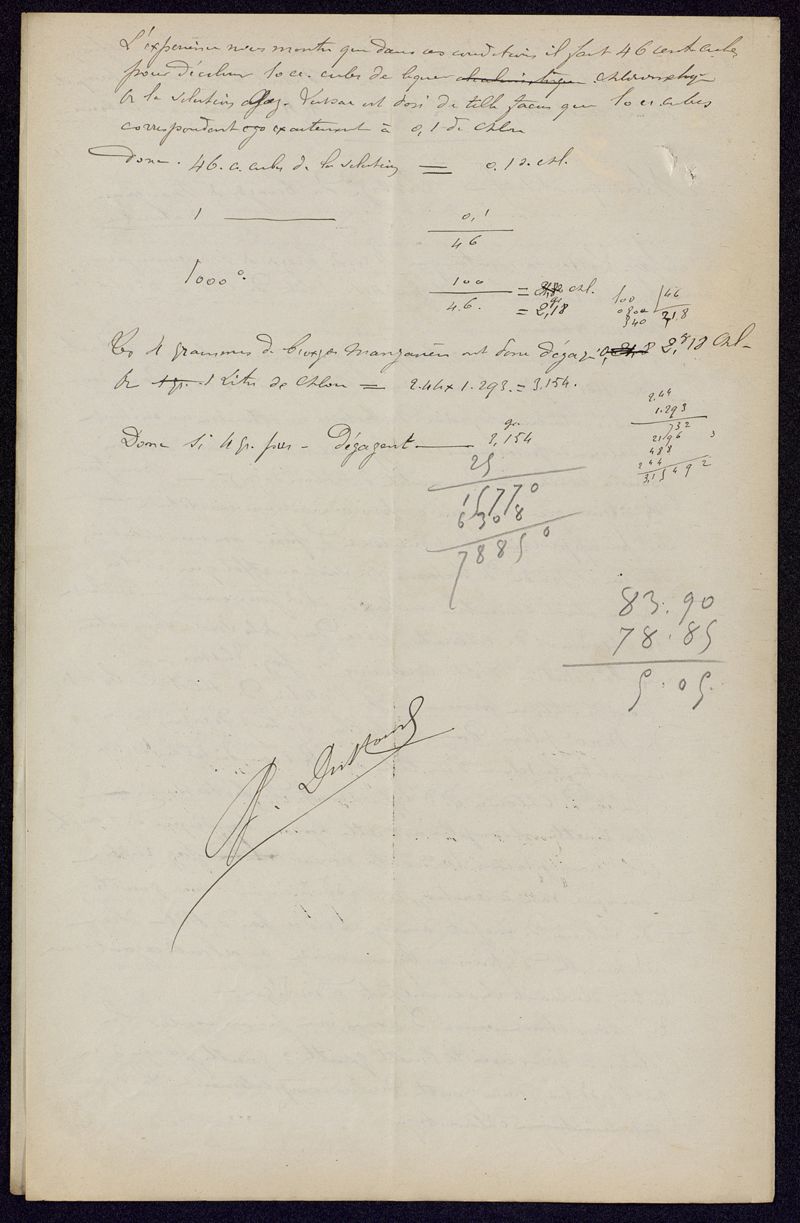 L'expérience nous montre que dans ces conditions il faut 46 cent. cubes
pour décolorer 10 ce. cubes de liqueur
Or la solution Gay-Lussac est dosé de telle façon que 10 ce. cubes
correspondent exactement à 0,1 de Chlore
Donc. 46. c. cubes de la solution = 0.1 de chl.
1 0,1
46
1000°. 100 = chl.
4.6. = 2,18
100 46
340 2,18
Les 4 grammes de bioxyde manganèse ont donc dégagé 2,18 Chl
Or 1 Litre de Chlore = 2.44 x 1.293. = 3.154.
2.44
1.293
732
2196
488
244
3,15492
Donc si 4 gr. purs - Dégagent 3,154
25
15770
6308
78850
83.90
78.85
5.05.